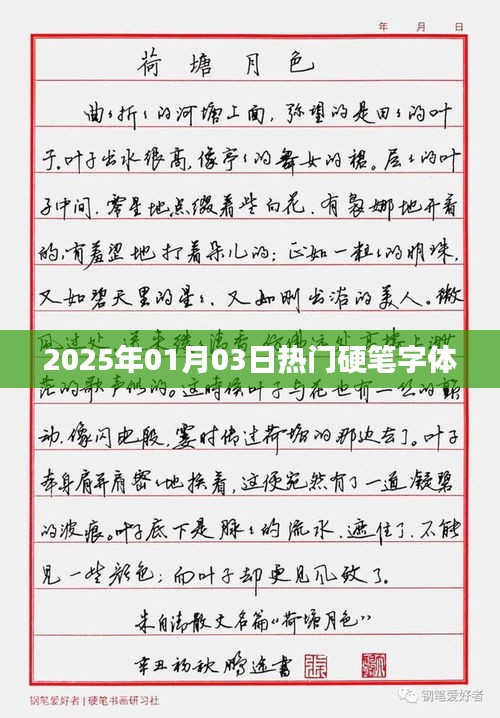 年 月 日
荷塘月色
曲曲折折的河塘上面,弥望的是田田的叶
子.叶子出水很高,像亭亭的舞女的裙.层层的叶
子中间.零星地点缀着些白花.有袅娜地开着
的,有羞涩地打着朵儿的;正如一粒粒的明珠,
又如碧天里的星星,又如刚出浴的美人.微
2025年01月03日热门硬笔字体
茫的歌声似的.这时候叶子与花也有一丝的颤
动.像闪电般,霎时传过荷塘的那边去了.叶子
本身肩并肩密密地挨着,这便宛然有了一道凝碧
的波痕.叶子底下是脉脉的流水.遮住了.不能
见一些颜色;而叶子却更见风致了.
朱自清散文名篇《荷塘月色》
辛丑初秋 鹏远书
钢笔爱好者 | 硬笔书画研习社
钢笔爱好者